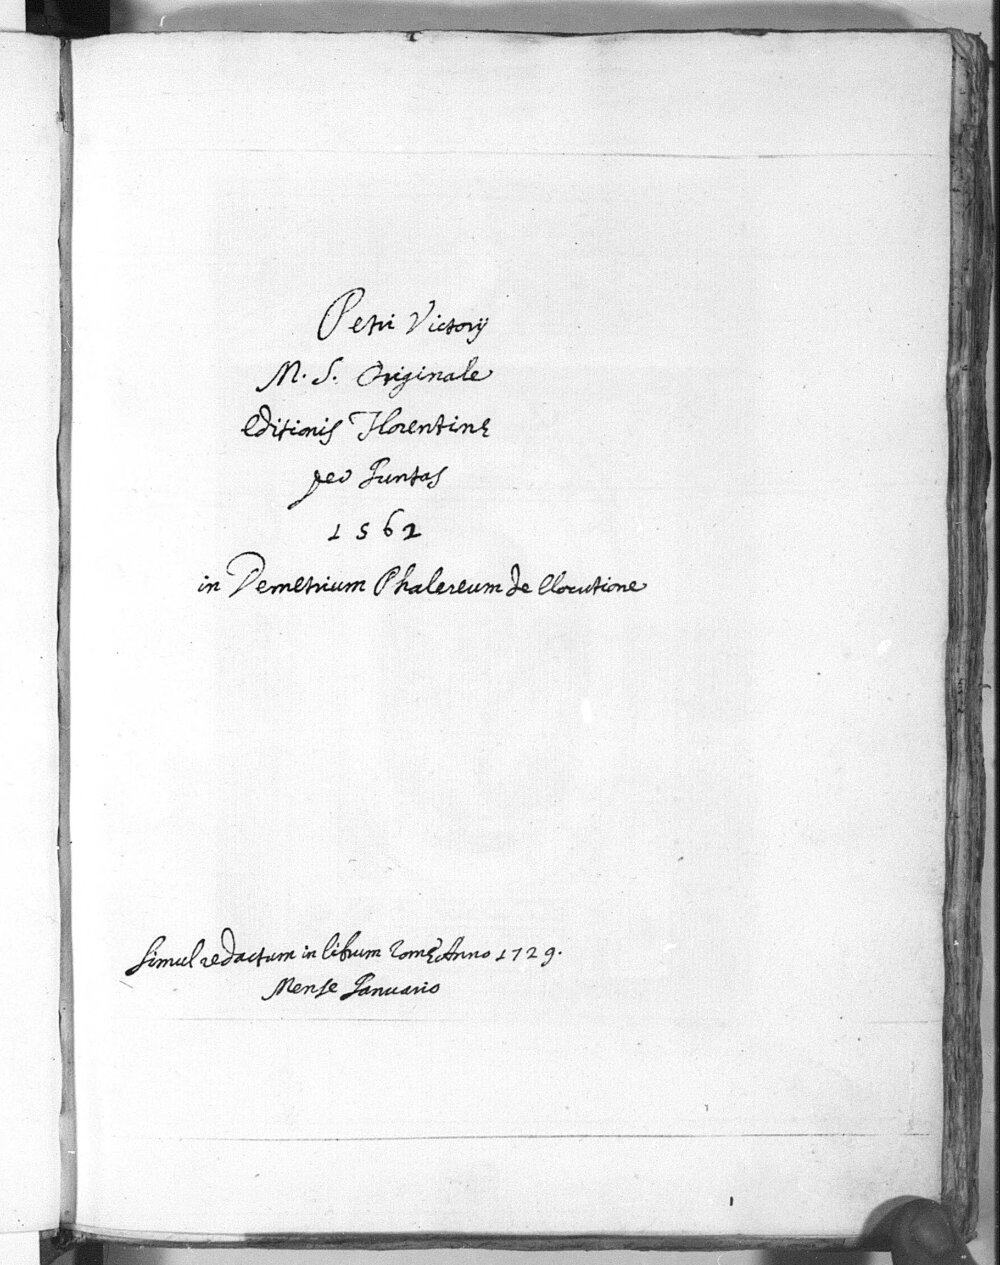 Petri Victorij
M. S. Originale
editionis Florentinę
per Juntas
1562
in Demetrium Phalereum de Elocutione
Simul redactum in librum Romę Anno 1729.
Mense Januario